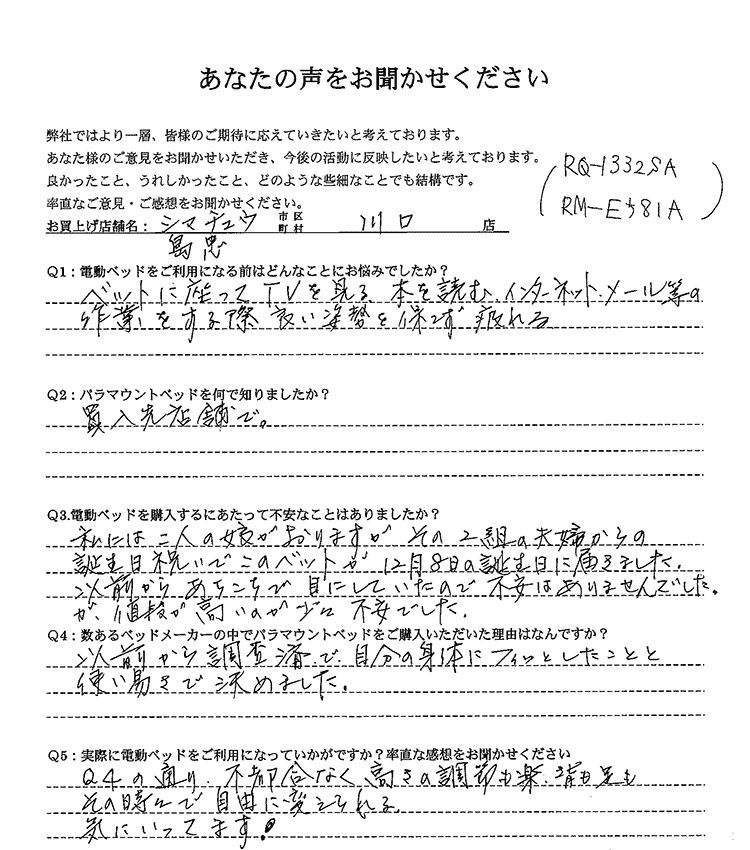 あなたの声をお聞かせください
弊社ではより一層、皆様のご期待に応えていきたいと考えております。
あなた様のご意見をお聞かせいただき、今後の活動に反映したいと考えております。
良かったこと、うれしかったこと、どのような些細なことでも結構です。
率直なご意見・ご感想をお聞かせください。
(RQ-1332SA
RM-E581A)
お買上げ店舗名：シマチュウ 市区町村 川口 店
島忠
Q1：電動ベッドをご利用になる前はどんなことにお悩みでしたか？
ベットに座ってTVを見る、本を読む、インターネット、メール等の
作業をする際良い姿勢を保てず疲れる
Q2：パラマウントベッドを何で知りましたか？
買入先店舗で。
Q3.電動ベッドを購入するにあたって不安なことはありましたか？
私には二人の娘がおりますが その2組の夫婦からの
誕生日祝いでこのベットが 12月8日の誕生日に届きました。
以前から あちこちで 目にしていたので 不安はありませんでした。
が、値段が高いのが少々不安でした。
Q4：数あるベッドメーカーの中でパラマウントベッドをご購入いただいた理由はなんですか？
以前から調査済で、自分の身体にフィットしたことと
使い易さで決めました。
Q5：実際に電動ベッドをご利用になっていかがですか？率直な感想をお聞かせください
Q4の通り、不都合なく、高さの調節も楽、背も足も
その時々で自由に変えられる。
気にいってます！